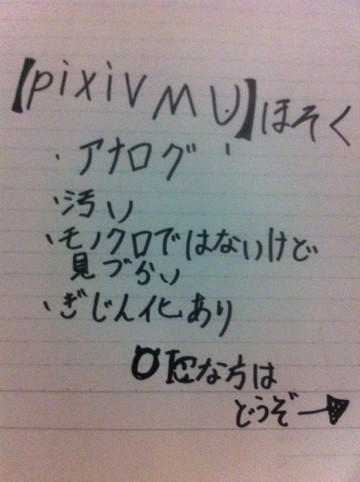 【pixiv MU】ほそく
・アナログ
・汚い
・モノクロではないけど
見づらい
・ぎじん化あり
OKな方は
どうぞ→